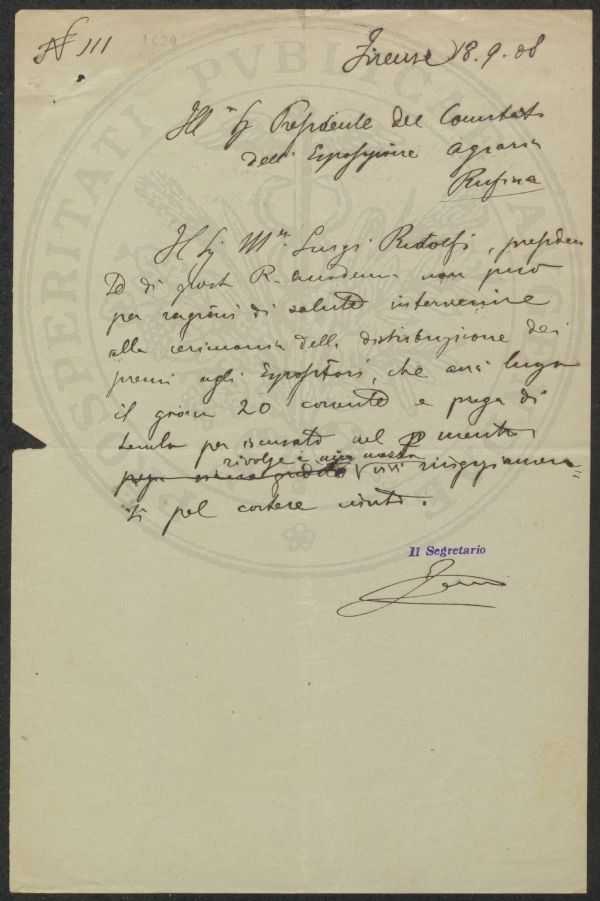 N 111
Firenze 18.9.08
Ill.mo Sig Presidente del Comitato
dell' Esposizione Agraria
Rufina
Il Sig. M.se Luigi Ridolfi, presiden
te di questa R. Accademia non può
per ragioni di salute intervenire
alla cerimonia della distribuzione dei
premi agli Espositori, che avrà luogo
il giorno 20 corrente e prega di
tenerlo per iscusato nel mentre
rivolge a mio mezzo
vivi ringraziamen
ti pel cortese invito.
Il Segretario
PROSPERITATI PVBLICAE